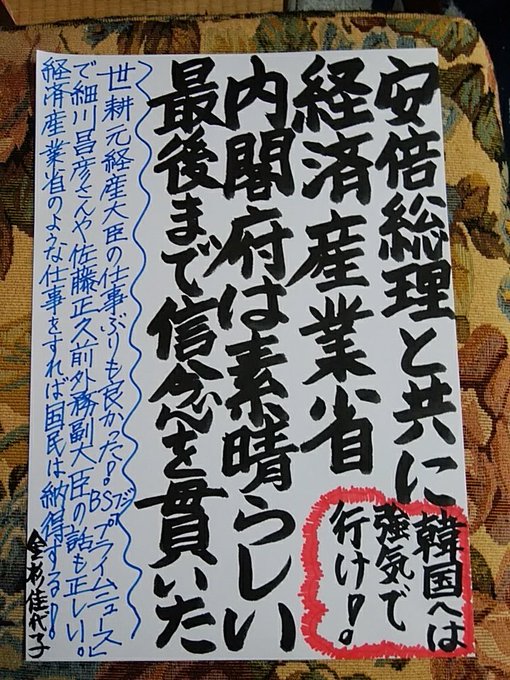 安倍総理と共に
経済産業省
内閣府は素晴らしい
最後まで信念を貫いた
韓国へは
強気で
行け!。
世耕元経産大臣の仕事ぶりも良かった!。BSフジ。プライムニュース
で細川昌彦さんや佐藤正久前外務副大臣の話も正しい。
経済産業省のような仕事をすれば国民は納得する!。
金杉佳代子